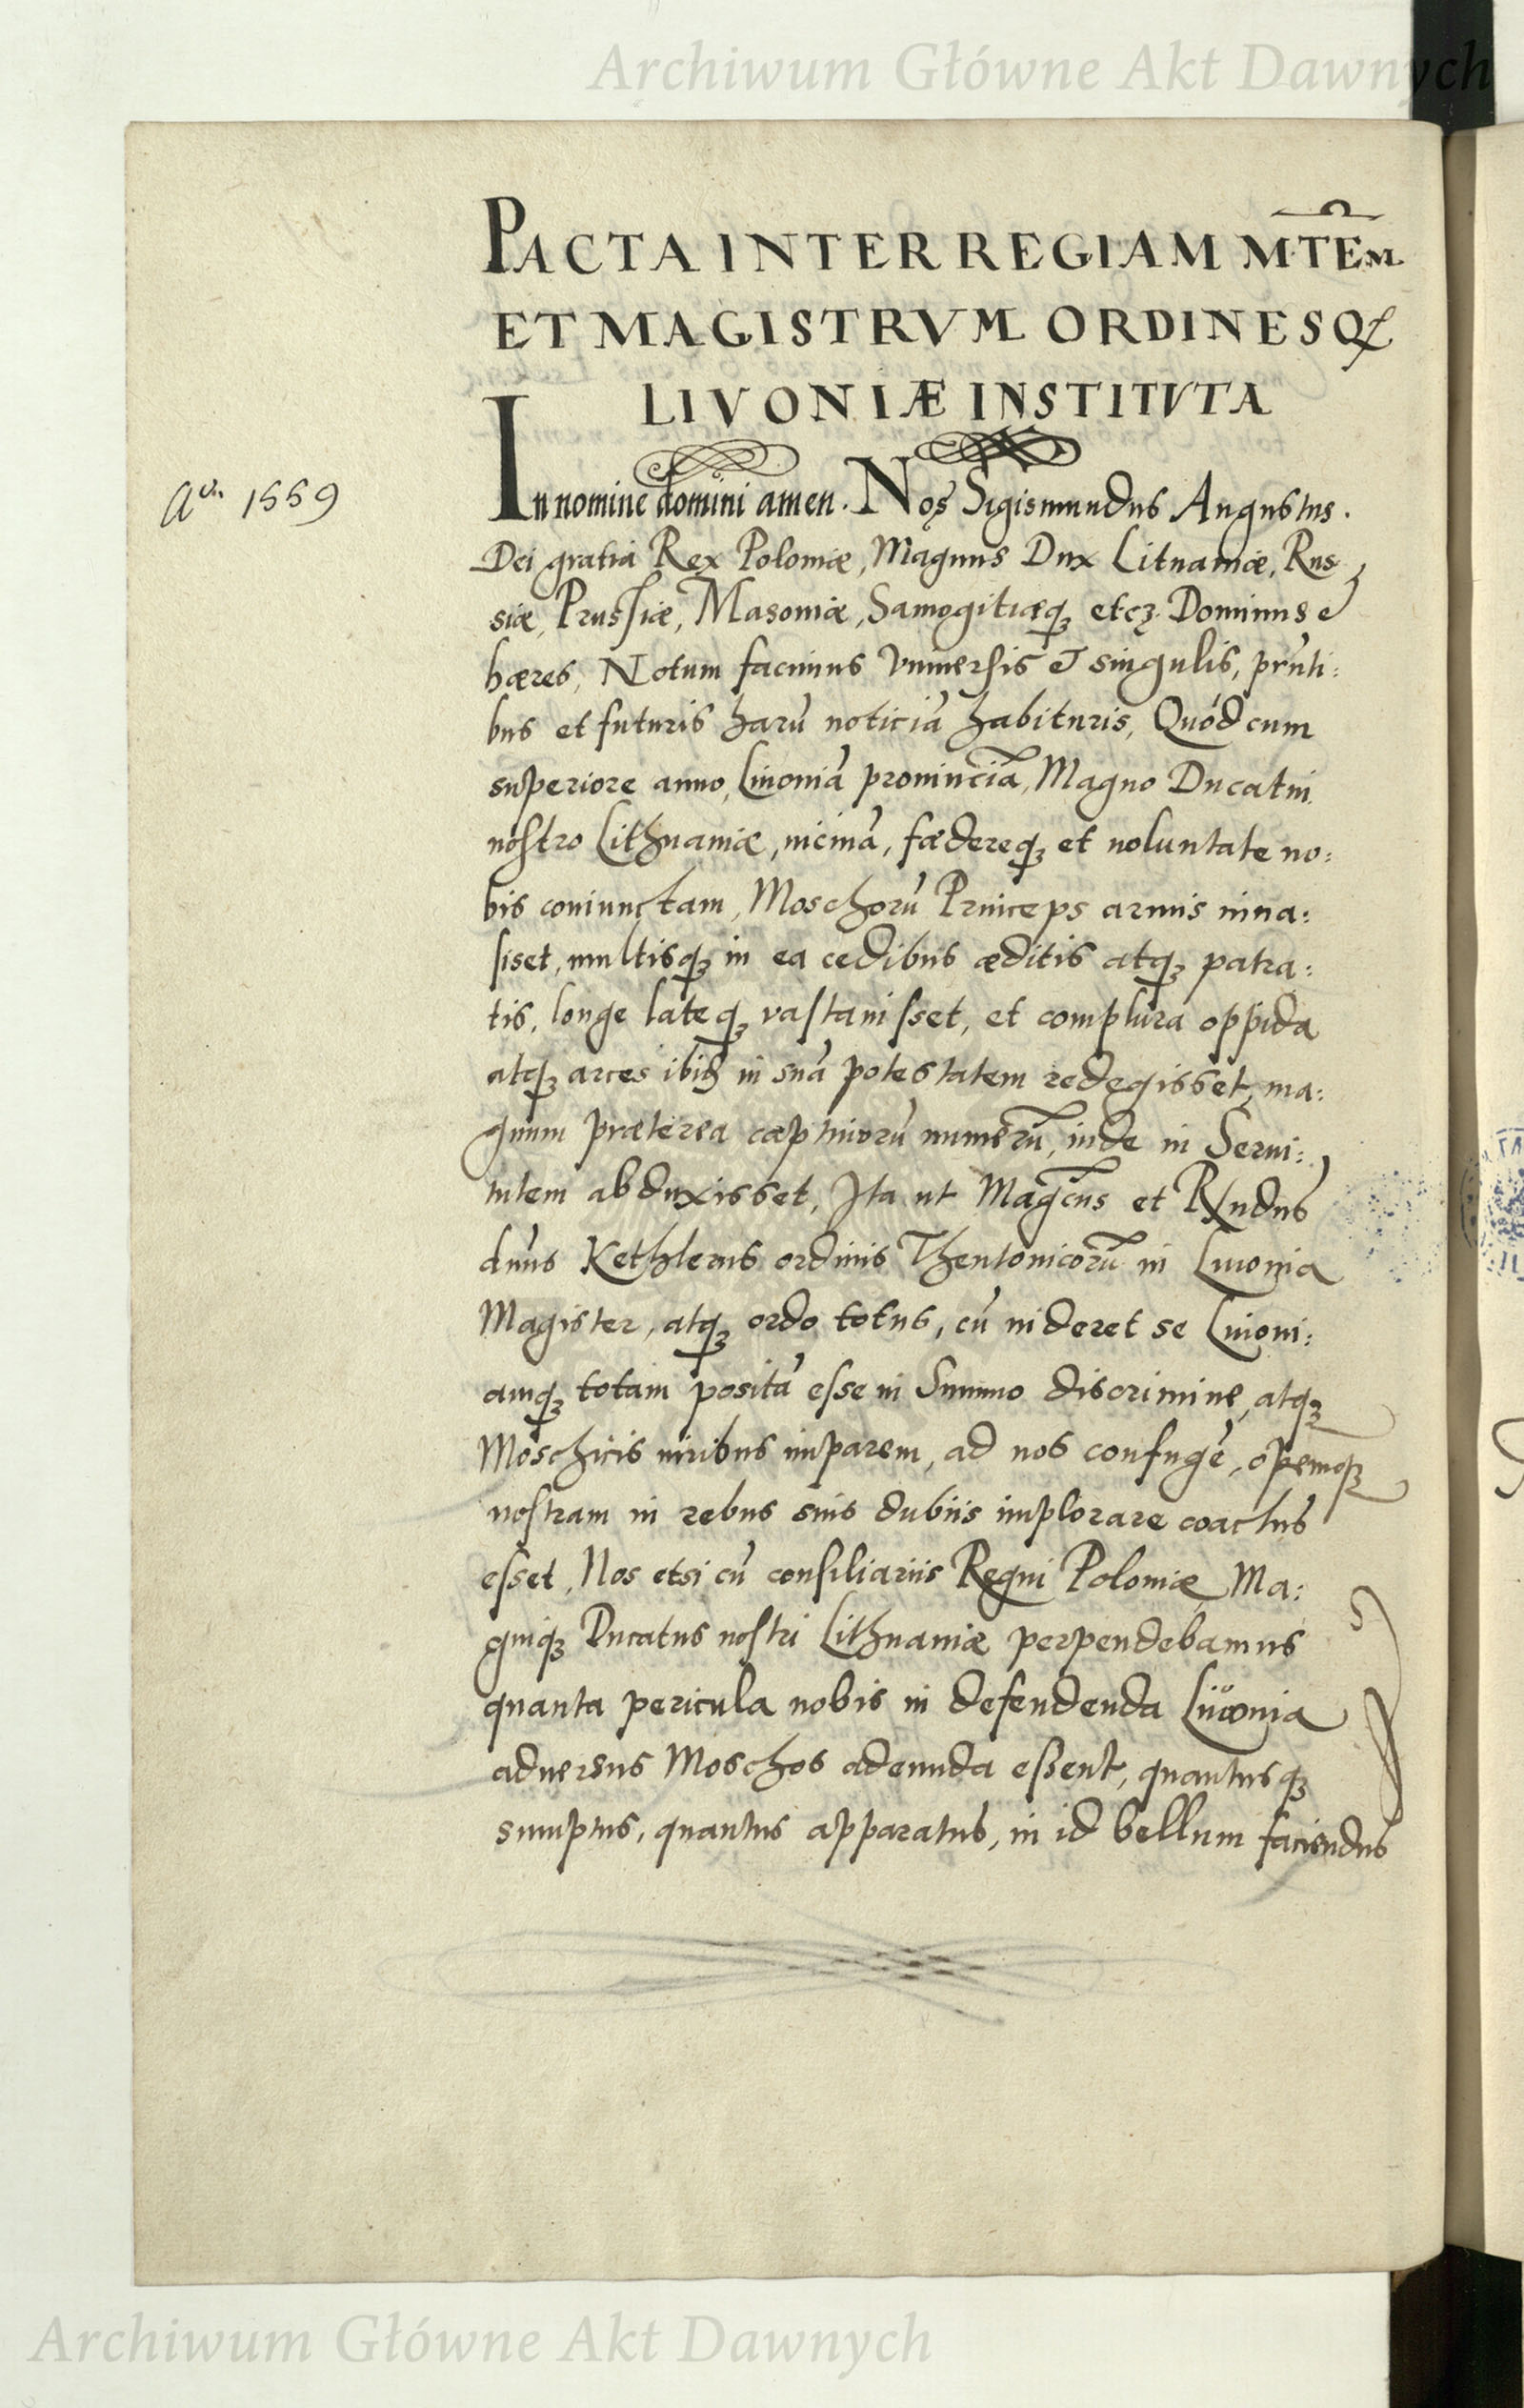 Archiwum Główne Akt Dawnych
PACTA INTER REGIAM M.TEM
ET MAGISTRVM ORDINESQꝫ
LIVONIÆ INSTITVTA
Aᵒ 1559
In nomine domini amen. Nos Sigismundus Augustus.
Dei gratia Rex Poloniæ, Magnus Dux Lituaniæ, Rus
siæ, Prussiæ, Masouiæ, Samogitiæqꝫ etcꝫ. Dominus et
hæres, Notum facimus vniuersis et singulis, pr̃nti:
bus et futuris harũ noticiã habituris, Quód cum
superiore anno, Liuoniã prouinciã, Magno Ducatui
nostro Lithuaniæ, uicinã, fædereqꝫ et uoluntate no:
bis coniunctam, Moschorũ Princeps armis inua:
siset, multisqꝫ in ea cedibus æditis atqꝫ patra:
tis, longe lateqꝫ vastauisset, et complura oppida
atqꝫ arces ibiɖ in suã potestatem redegisset, ma:
gnum præterea cæptiuorũ numerũ, inde in Serui:
tutem abduxisset, Ita ut Magc̃us et Rx̃ndus
dñus Kethlerus ordinis Theutonicorũ in Liuonia
Magister, atqꝫ ordo totus, cũ uideret se Liuoni:
amqꝫ totam positã esse in Summo discrimine, atqꝫ
Moschicis uiribus imparem, ad nos confugẽ, opemqꝫ
nostram in rebus suis dubiis implorare coactus
esset, Nos etsi cũ consiliariis Regni Poloniæ Ma:
gniqꝫ Ducatus nostri Lithuaniæ perpendebamus
quanta pericula nobis in defendenda Liuonia
aduersus Moschos adeunda essent, quantusqꝫ
sumptus, quantus apparatus, in id bellum faciendus
Archiwum Główne Akt Dawnych